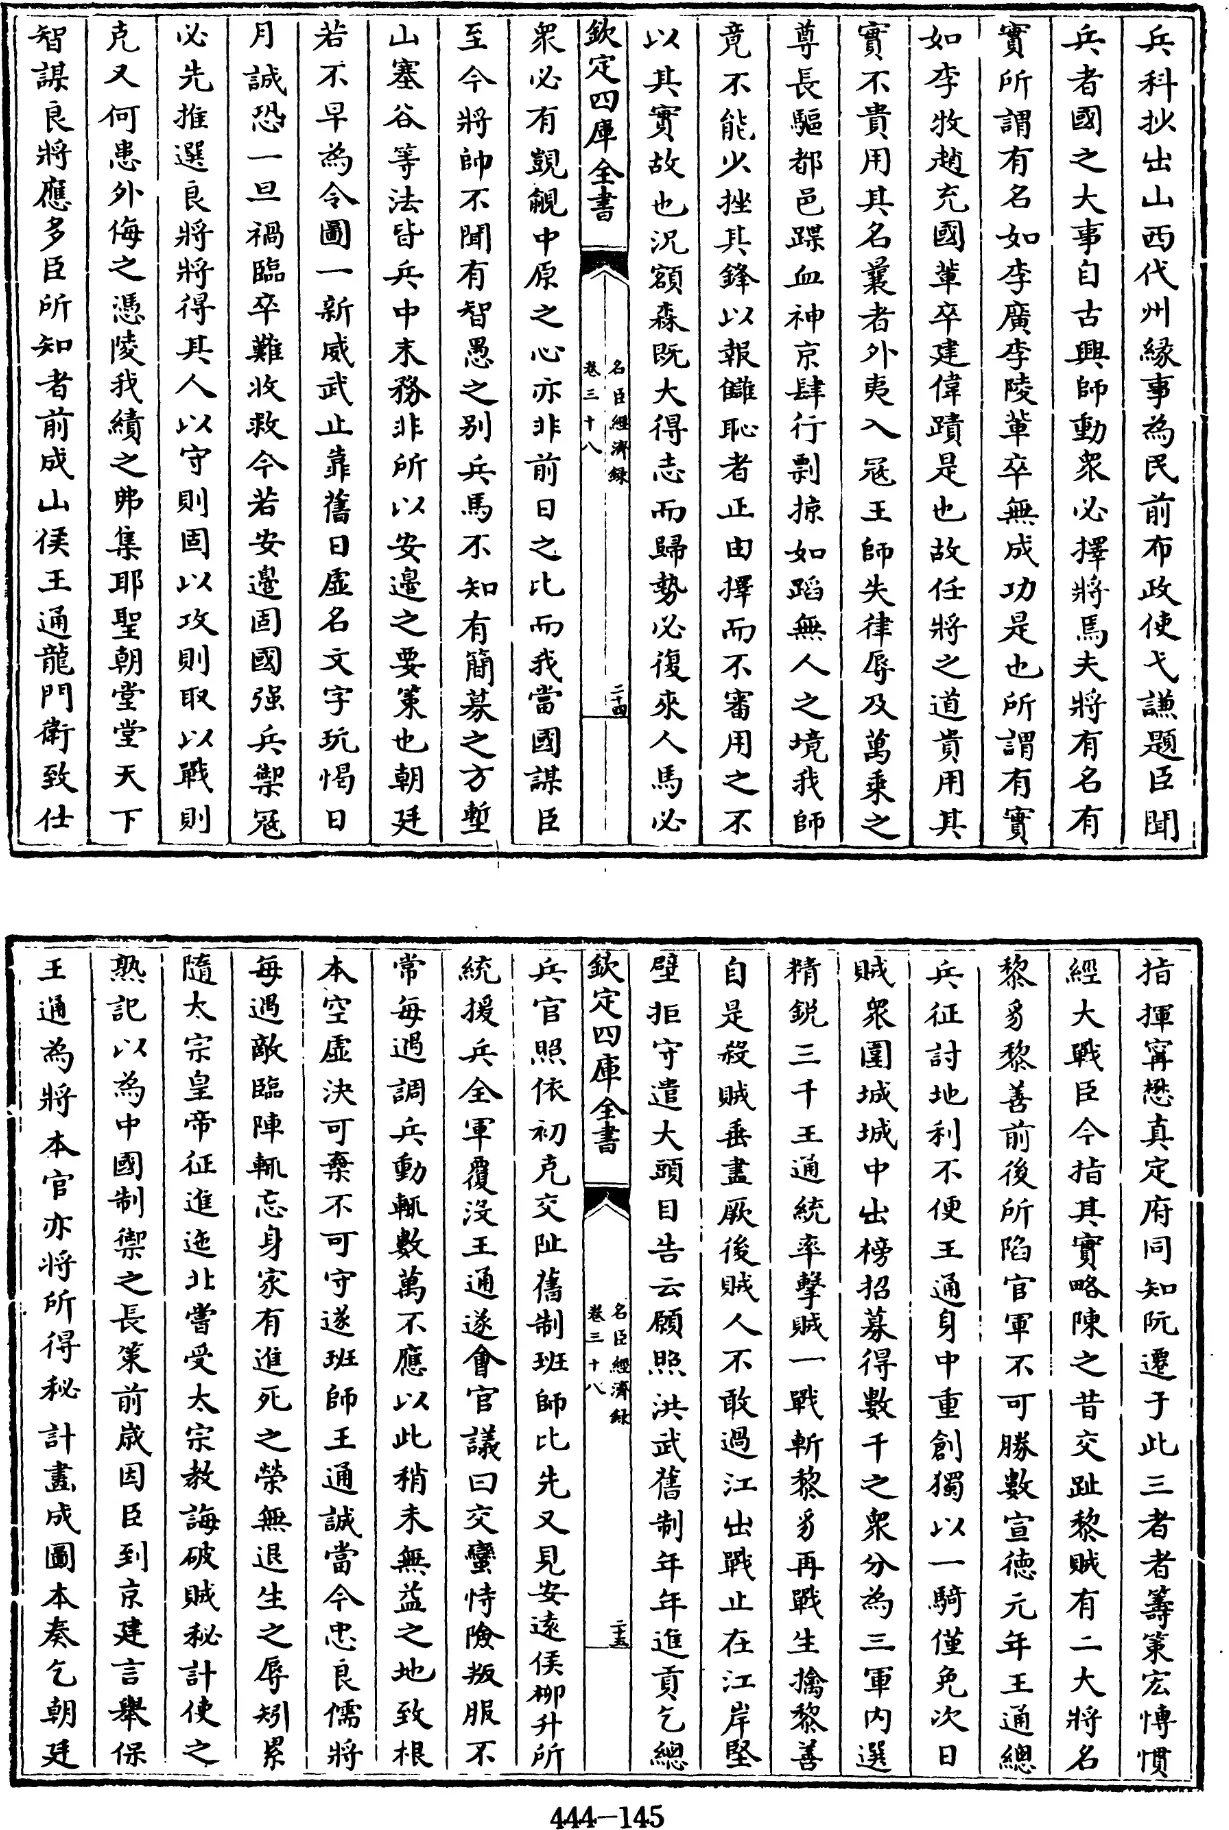 兵科抄出山西代州緣事為民前布政使弋謙題臣聞
兵者國之大事自古興師動衆必擇將焉夫將有名有
實所謂有名如李廣李陵輩卒無成功是也所謂有實
如李牧趙充國輩卒建偉蹟是也故任將之道貴用其
實不貴用其名曩者外夷入冦王師失律辱及萬乗之
尊長驅都邑蹀血神京肆行剽掠如蹈無人之境我師
竟不能少挫其鋒以報讎恥者正由擇而不審用之不
以其實故也況額森既大得志而歸勢必復來人馬必
欽定四庫全書
名臣經濟録
卷三十八
二十四
衆必有覬覦中原之心亦非前日之比而我當國謀臣
至今將帥不聞有智愚之别兵馬不知有簡募之方塹
山塞谷等法皆兵中末務非所以安邊之要策也朝廷
若不早為令圖一新威武止靠舊日虛名文字玩愒日
月誠恐一旦禍臨卒難收救今若安邊固國强兵禦冦
必先推選良將將得其人以守則固以攻則取以戰則
克又何患外侮之憑陵我績之弗集耶聖朝堂堂天下
智謀良將應多臣所知者前成山侯王通龍門衛致仕
指揮寗懋真定府同知阮遷于此三者者籌策宏愽慣
經大戰臣今指其實略陳之昔交趾黎賊有二大將名
黎豸黎善前後所陷官軍不可勝數宣徳元年王通總
兵征討地利不便王通身中重創獨以一騎僅免次日
賊衆圍城城中出榜招募得數千之衆分為三軍内選
精鋭三千王通統率擊賊一戰斬黎豸再戰生擒黎善
自是殺賊垂盡厥後賊人不敢過江出戰止在江岸堅
壁拒守遣大頭目告云願照洪武舊制年年進貢乞總
欽定四庫全書
名臣經濟録
卷三十八
二十五
兵官照依初克交阯舊制班師比先又見安逺侯柳升所
統援兵全軍覆没王通遂會官議曰交蠻恃險叛服不
常每遇調兵動輒數萬不應以此稍未無益之地致根
本空虛決可棄不可守遂班師王通誠當今忠良儒將
每遇敵臨陣輒忘身家有進死之榮無退生之辱矧累
隨太宗皇帝征進迤北嘗受太宗教誨破賊秘計使之
熟記以為中國制禦之長策前歲因臣到京建言舉保
王通為將本官亦將所得秘計畫成圖本奏乞朝廷
444-145